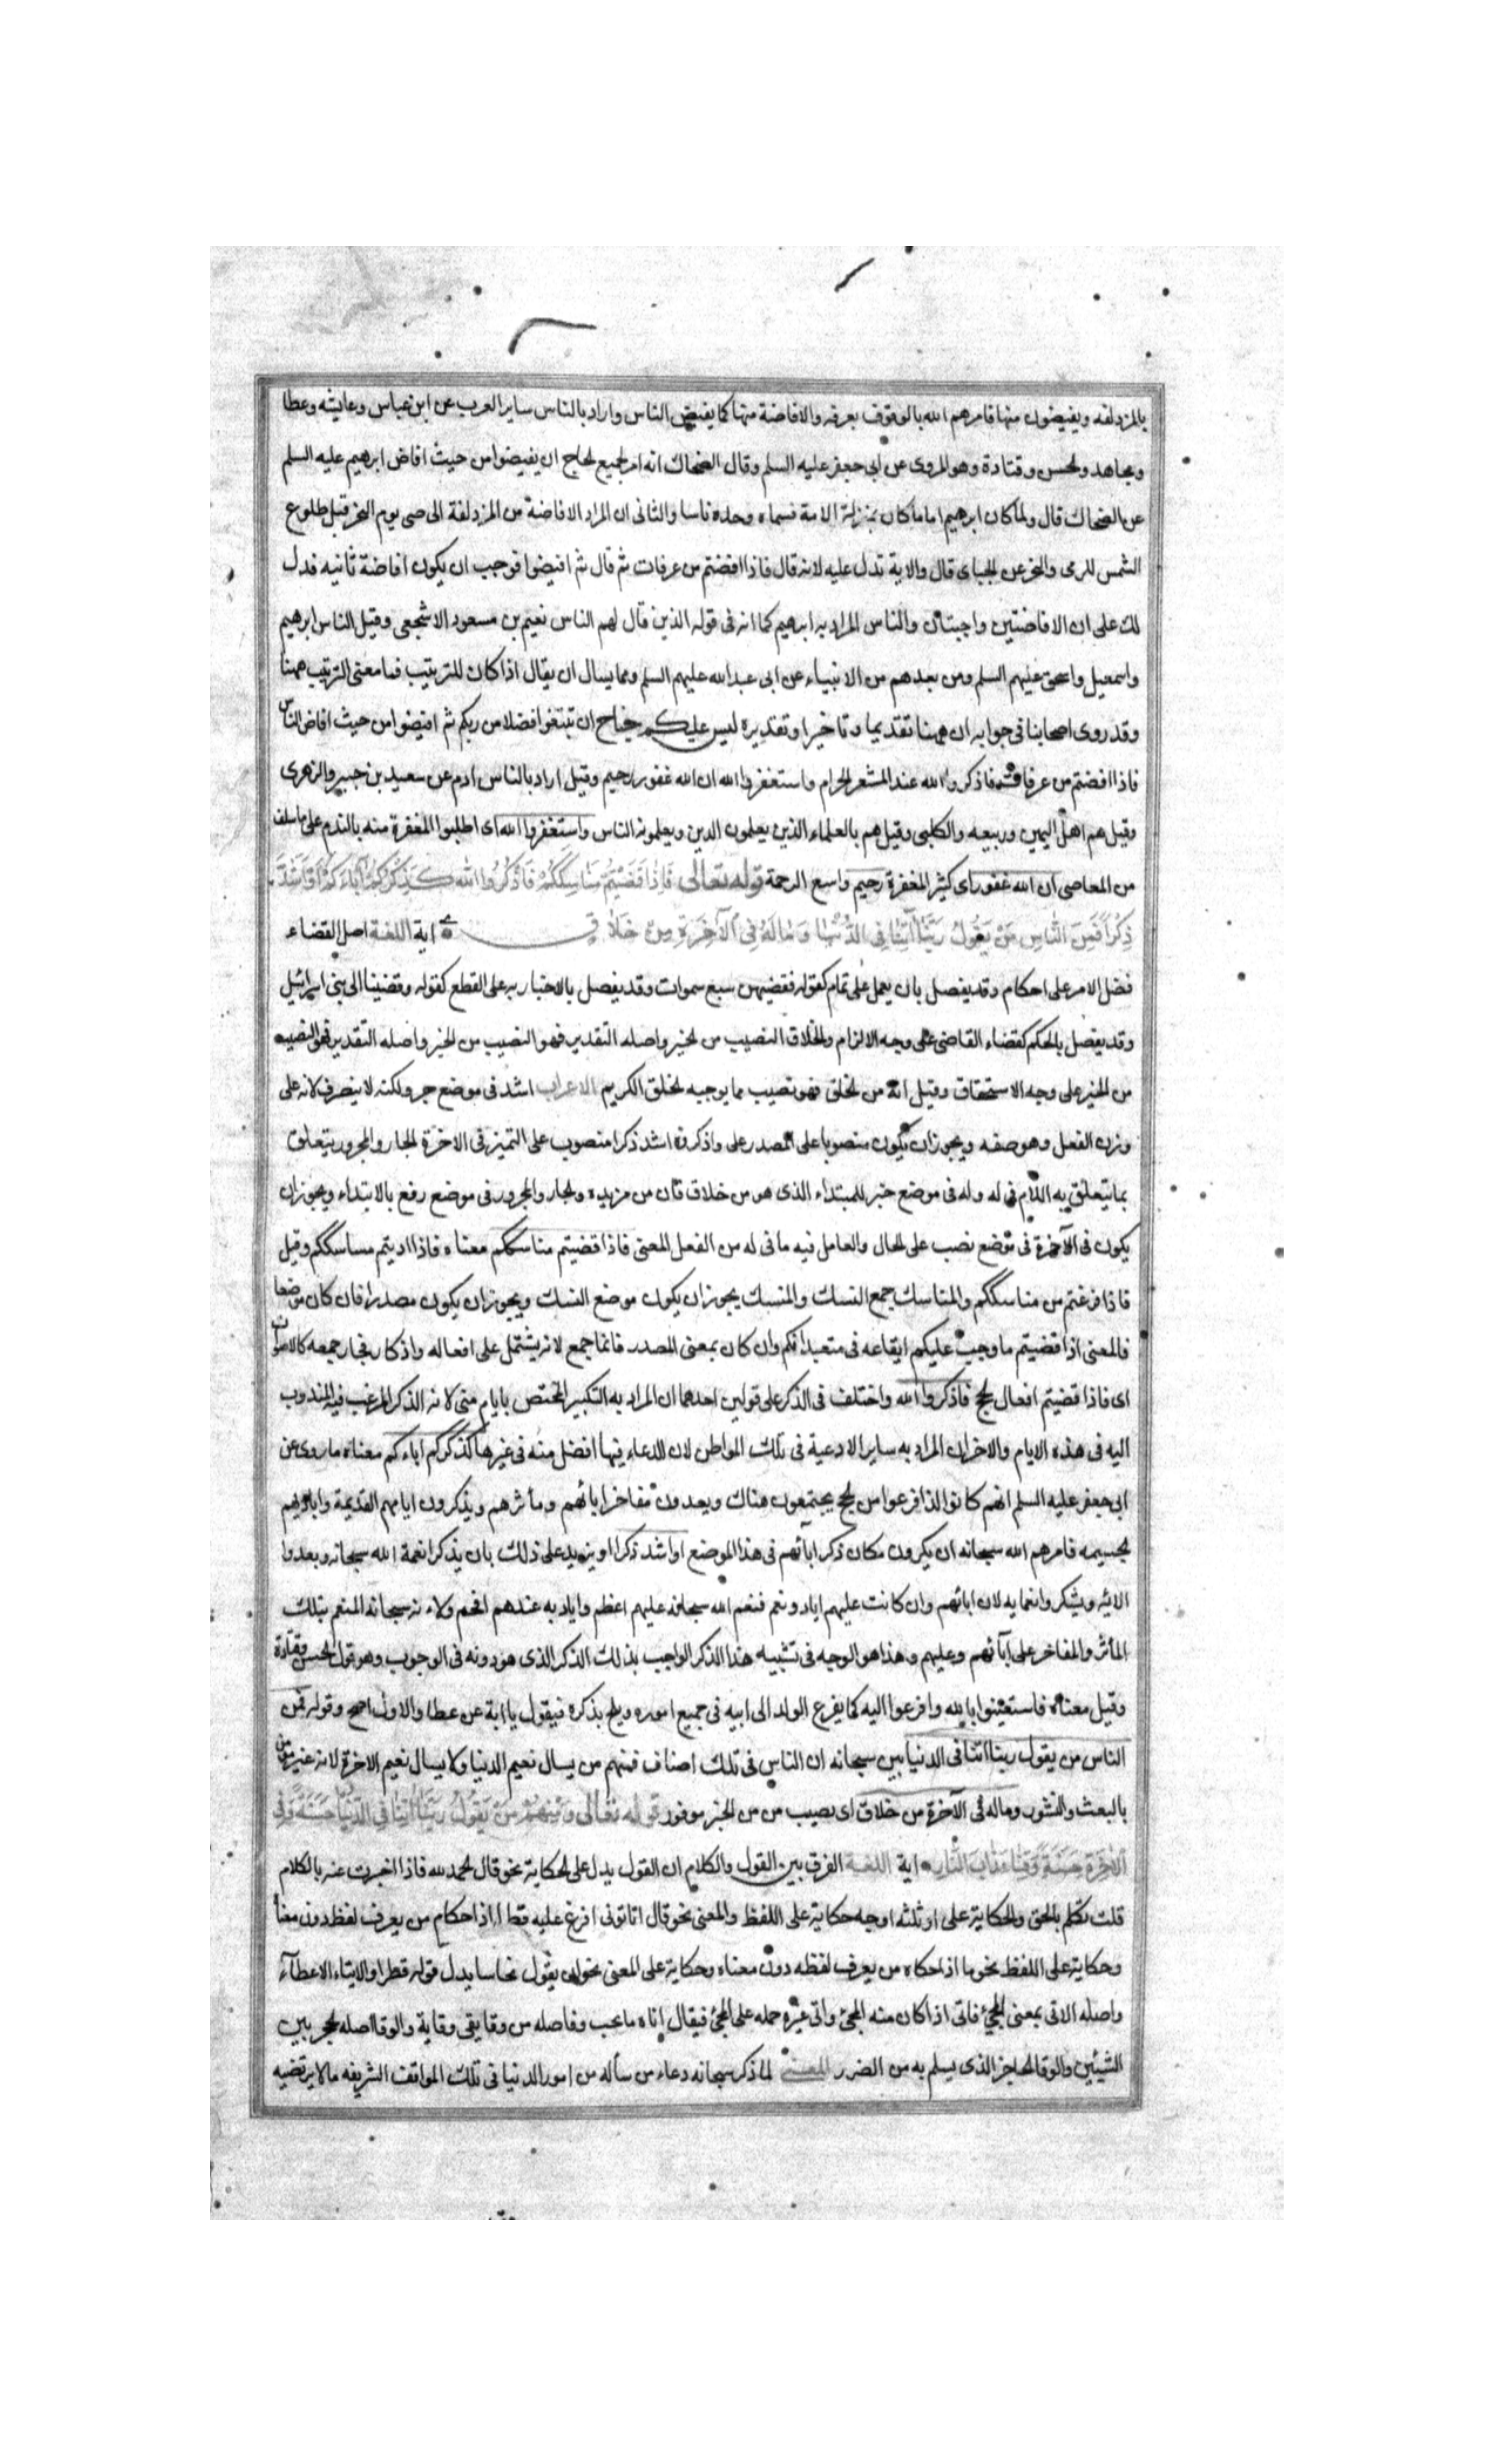 بالمزدلفه ويفيضون منها فامرهم الله بالوقوف بعرفه والافاضة منها كما يفيض الناس واراد بالناس ساير العرب عن ابن عباس وعايشه وعطا
ومجاهد ولحسن وقتادة وهو المروى عن ابى جعفر عليه السلم وقال الضحاك انه امر لجميع لحاج ان يفيضوا من حيث افاض ابرهيم عليه السلم
عن الضحاك قال ولما كان ابرهيم اماما كان بمنزلة الامة فسماه وحده ناسا والثانى ان المراد الافاضة من المزدلفة الى منى يوم النحر قبل طلوع
الشمس للرمى والنحر عن لجباى قال والاية تدل عليه لانه قال فاذا افضتم من عرفات ثم قال ثم افيضوا فوجب ان يكون افاضة ثانيه فدل
لك على ان الافاضتين واجبتان والناس المراد به ابرهيم كما انه فى قوله الذين قال لهم الناس نعيم بن مسعود الاشجعى وقيل الناس ابرهيم
واسمعيل واسحق عليهم السلم ومن بعدهم من الانبياء عن ابى عبد الله عليهم السلم ومما يسال ان يقال اذا كان للترتيب فما معنى الترتيب ههنا
وقد روى اصحابنا فى جوابه ان ههنا تقديما وتاخيرا وتقديره ليس عليكم جناح ان تبتغوا فضلا من ربكم ثم افيضوا من حيث افاض الناس
فاذا افضتم من عرفات فاذكروا الله عند المشعر الحرام واستغفروا الله ان الله غفور رحيم وقيل اراد بالناس ادم عن سعيد بن جبير والزهرى
وقيل هم اهل اليمن وربيعه والكلبى وقيل هم بالعلماء الذين يعلمون الدين ويعلمونه الناس واستغفروا الله اى اطلبوا المغفرة منه بالندم على ما سلف
من المعاصى ان الله غفور اى كثير المغفرة رحيم واسع الرحمة قوله تعالى فَاِذَا قَضَيْتُمْ مَنَاسِكَكُمْ فَاذْكُرُوا اللهَ كَذِكْرِكُمْ آبَاءَكُمْ اَوْ اَشَدَّ
ذِكْرًا فَمِنَ النَّاسِ مَنْ يَقُولُ رَبَّنَا آتِنَا فِى الدُّنْيَا وَمَا لَهُ فِى الْآخِرَةِ مِنْ خَلَاقٍ اية اللغة اصل القضاء
فضل الامر على احكام وقد يفصل بان يعمل على تمام كقوله فقضيهن سبع سموات وقد يفصل بالاخبار به على القطع كقوله وقضينا الى بنى اسرائيل
وقد يفصل بالحكم كقضاء القاضى على وجه الالزام ولخلاق النصيب من لخير واصله التقدير فهو النصيب من الخير واصله التقدير فهو النصيب
من الخير على وجه الاستحقاق وقيل انه من لخلق فهو نصيب مما يوجبه لخلق الكريم الاعراب اشد فى موضع جر ولكنه لا ينصرف لانه على
وزن الفعل وهو صفه ويجوز ان يكون منصوبا على المصدر على واذكروه اشد ذكرا منصوب على التميز فى الاخرة لجار والمجرور يتعلق
بما يتعلق به اللام فى له وله فى موضع خبر للمبتداء الذى هو من خلاق فان من مزيده ولجار والمجرور فى موضع رفع بالابتداء ويجوز ان
يكون فى الآخرة فى موضع نصب على لحال والعامل فيه ما فى له من الفعل المعنى فاذا قضيتم مناسككم معناه فاذا اديتم مساسككم وقيل
فاذا فرغتم من مناسككم والمناسك جمع النسك والمنسك يجوز ان يكون موضع النسك ويجوز ان يكون مصدرا فان كان موضعا
فالمعنى اذا قضيتم ما وجب عليكم ايقاعه فى متعبداتكم وان كان بمعنى المصدر فانما جمع لانه يشتمل على افعاله واذكار فجاز جمعه كالاصوات
اى فاذا قضيتم افعال لحج فاذكروا الله واختلف فى الذكر على قولين احدهما ان المراد به التكبير المختص بايام منى لانه الذكر المرغب فيه المندوب
اليه فى هذه الايام والاخر ان المراد به ساير الادعية فى تلك المواطن لان الدعاء فيها افضل منه فى غيرها كذكركم اباءكم معناه ما روى عن
ابى جعفر عليه السلم انهم كانوا اذا فرعوا من لحج يجتمعون هناك ويعدون مفاخر ابائهم ومأثرهم ويذكرون ايامهم القديمة واياديهم
لجسيمه فامرهم الله سبحانه ان يكرون مكان ذكر ابائهم فى هذا الموضع او اشد ذكرا او يزيد على ذلك بان يذكرا نعمة الله سبحانه ويعدوا
الائيه ويشكروا نعمايه لان ابائهم وان كانت عليهم اياد ونعم فنعم الله سبحانه عليهم اعظم واياديه عندهم افخم ولانه سبحانه المنعم بتلك
المأثر والمفاخر على آبائهم وعليهم وهذا هو الوجه فى تشبيه هذا الذكر الواجب بذلك الذكر الذى هو دونه فى الوجوب وهو قول لحسن وقتادة
وقيل معناه فاستعينوا بالله وافرعوا اليه كما يفرع الولد الى ابيه فى جميع اموره ويلح بذكره فيقول يا ابة عن عطا والاول اصح وقوله فمن
الناس من يقول ربنا اتنا فى الدنيا بين سبحانه ان الناس فى تلك اصناف فمنهم من يسال نعيم الدنيا ولا يسال نعيم الاخرة لانه غير مومن
بالبعث والنشور وماله فى الآخرة من خلاق اى نصيب من من الخير موفور قوله تعالى وَمِنْهُمْ مَنْ يَقُولُ رَبَّنَا آتِنَا فِى الدُّنْيَا حَسَنَةً وَفِى
الْآخِرَةِ حَسَنَةً وَقِنَا عَذَابَ النَّارِ اية اللغة الفرق بين القول والكلام ان القول يدل على لحكاية نحو قال لحمد لله فاذا اخبرت عنه بالكلام
قلت تكلم بالحق ولحكاية على اوثلثه اوجه حكاية على اللفظ والمعنى نحو قال اتاتونى افرغ عليه قطرا اذا حكام من يعرف لفظ دون معنا
وحكاية على اللفظ نحو ما اذا حكاه من يعرف لفظه دون معناه وحكاية على المعنى نحو ان يقول نحاسا بدل قوله قطرا والايتاء الاعطآء
واصله الاتى بمعنى المجئ فاتى اذا كان منه المجئ واتى غيره حمله على المجئ فيقال اتاه ما يحب وفاصله من وقا يقى وقاية والوقا اصله لحجر بين
الشيئين والوقا لحاجز الذى يسلم به من الضرر المعنى لما ذكر سبحانه دعاء من سأله من امور الدنيا فى تلك المواقف الشريفه مالا يرتضيه